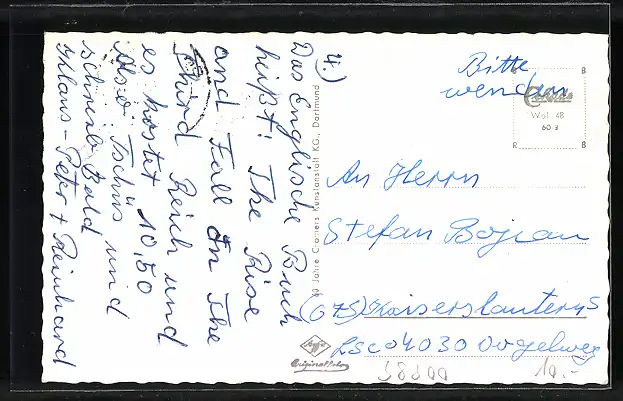 4.)
Das Englische Buch
heißt! The Rise
and Fall In The
Third Reich und
es kostet 10,50
Also Tschüs und
schreib Bald
Klaus-Peter + Reinhard
Jahre Cramers Kunstanstalt KG., Dortmund
Bitte
wenden
B
Cekade
Wol 48
60 3
R B
An Herrn
Stefan Bojean
(675) Kaiserslautern
40 30 Vogelweg
Agfa
Originalfoto
58300
10.-